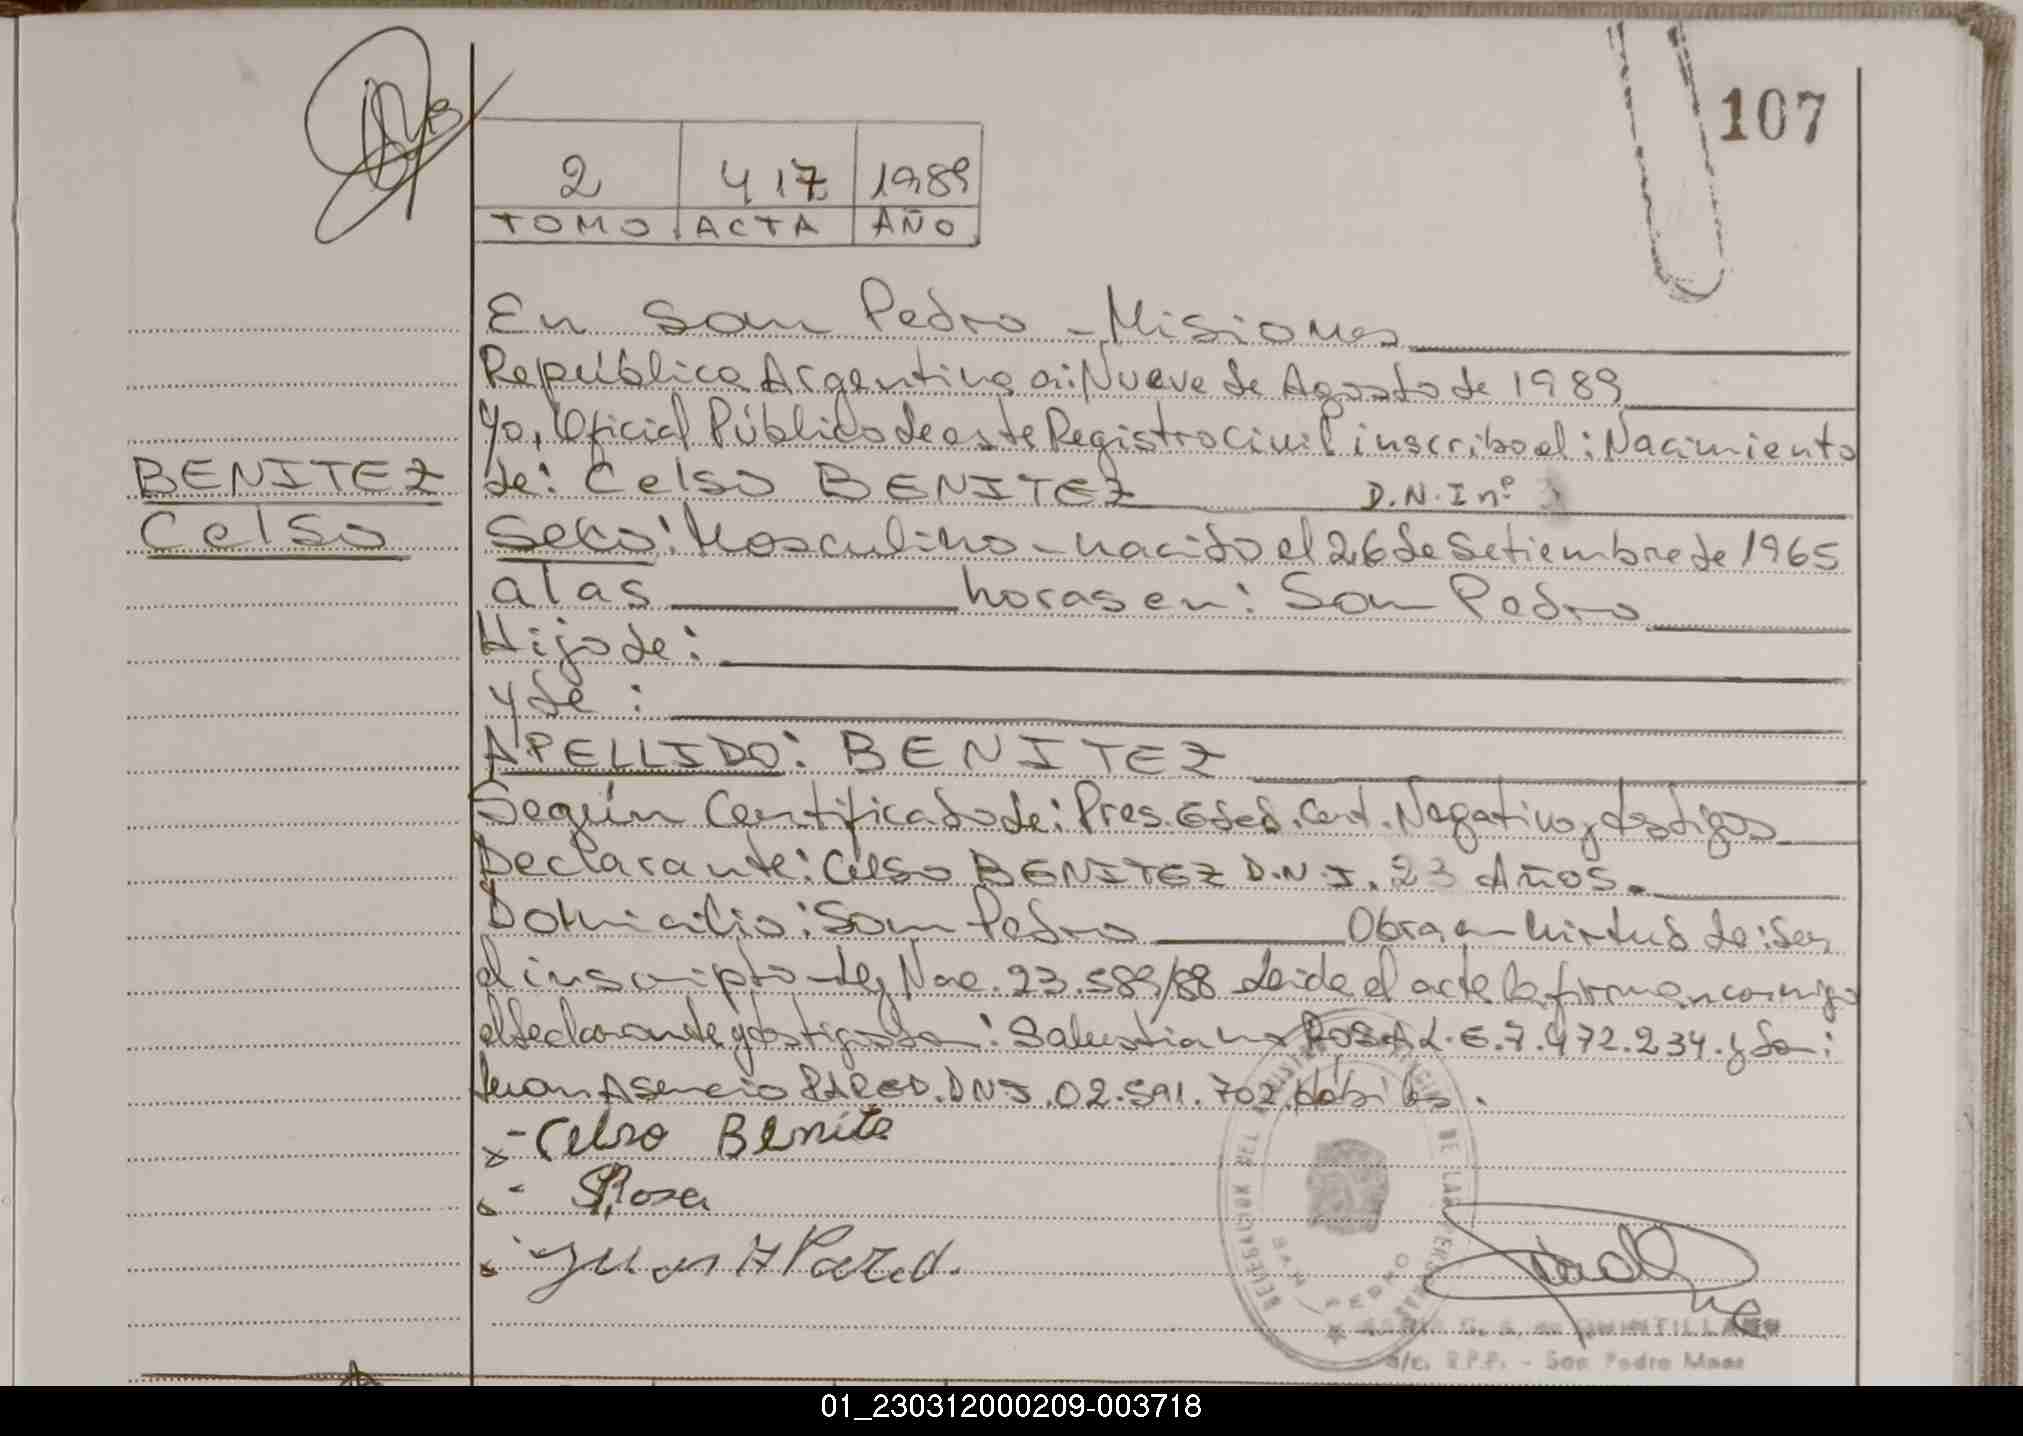 107
2 417 1989
TOMO ACTA AÑO
En San Pedro - Misiones
República Argentina a: Nueve de Agosto de 1989
Yo, Oficial Público de este Registro Civil inscribo el: Nacimiento
BENITEZ
Celso
de: Celso BENITEZ D.N.I nº
Sexo: Masculino - nacido el 26 de Setiembre de 1965
a las horas en: San Pedro
Hijo de:
y de :
APELLIDO: BENITEZ
Según Certificado de: Pres. Edad. Cert. Negativo y testigos
Declarante: Celso BENITEZ D.N.I. 23 AÑOS.
Domicilio: San Pedro Obra en virtud de: ser
el inscripto - Ley Nac. 23.589/88 Leida el acta la firman conmigo
el declarante y testigos Don: Salustiano ROSA L.E. 7.472.234. y Don:
Juan Asencio PARED. DNI. 02.591.702. Hábiles.
- Celso Benite
- S Rosa
Juan A Pared.
REGISTRO DE LAS PERSONAS
SAN PEDRO
G. A. de QUINTILLAN
a/c. R.P.P. - San Pedro Mnes
01_230312000209-003718